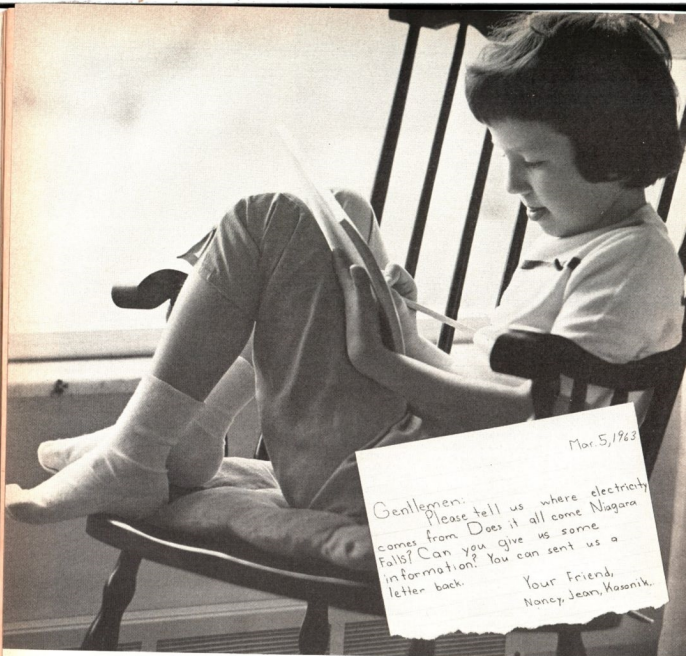 Mar. 5, 1963
Gentlemen:
Please tell us where electricity
comes from Does it all come Niagara
Falls? Can you give us some
information? You can sent us a
letter back.
Your Friend,
Nancy, Jean, Kasonik.